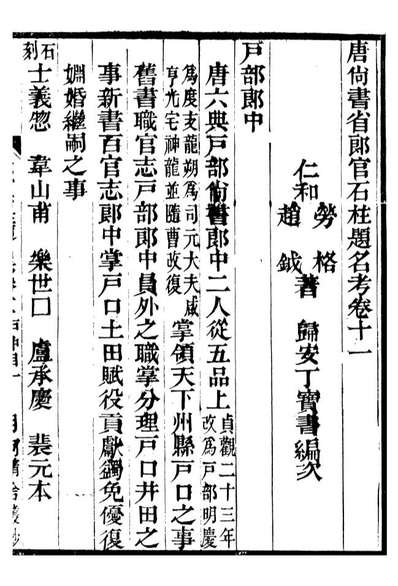 唐尚書省郎官石柱題名考卷十一
仁和 勞格
趙鉞 著 歸安丁寶書編次
戶部郎中
唐六典戶部尚書郎中二人從五品上貞觀二十三年改爲戶部明慶
爲度支龍朔爲司元大夫咸亨光宅神龍並隨曹改復掌領天下州縣戶口之事
舊書職官志戶部郎中員外之職掌分理戶口井田之
事新書百官志郎中掌戶口土田賦役貢獻蠲免優復
婣婚繼嗣之事
石刻 士義惣 韋山甫 樂世囗 盧承慶 裴元本